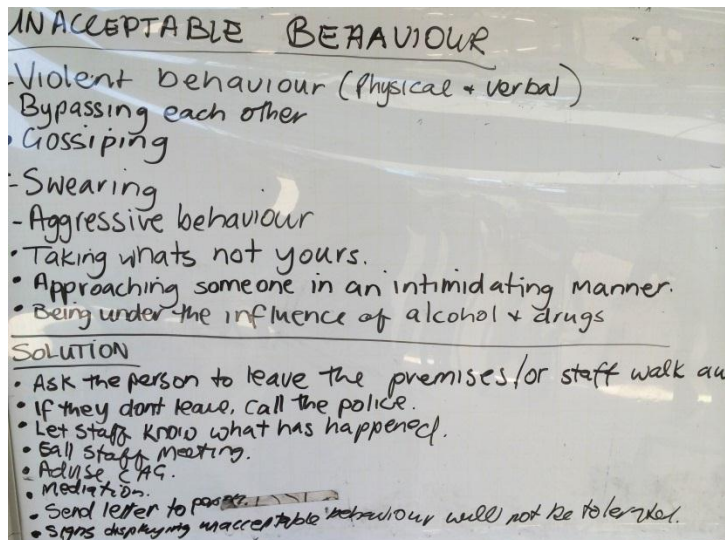 UNACCEPTABLE BEHAVIOUR
- Violent behaviour (Physical + verbal)
Bypassing each other
• Gossiping
- Swearing
- Aggressive behaviour
• Taking whats not yours.
• Approaching someone in an intimidating manner.
• Being under the influence of alcohol + drugs
SOLUTION
• Ask the person to leave the premises/or staff walk
• If they dont leave, call the police.
• Let staff know what has happened.
• Call staff meeting.
• Advise
• Mediation.
• Send letter to person.
• Signs displaying unacceptable behaviour will not be tolerated.